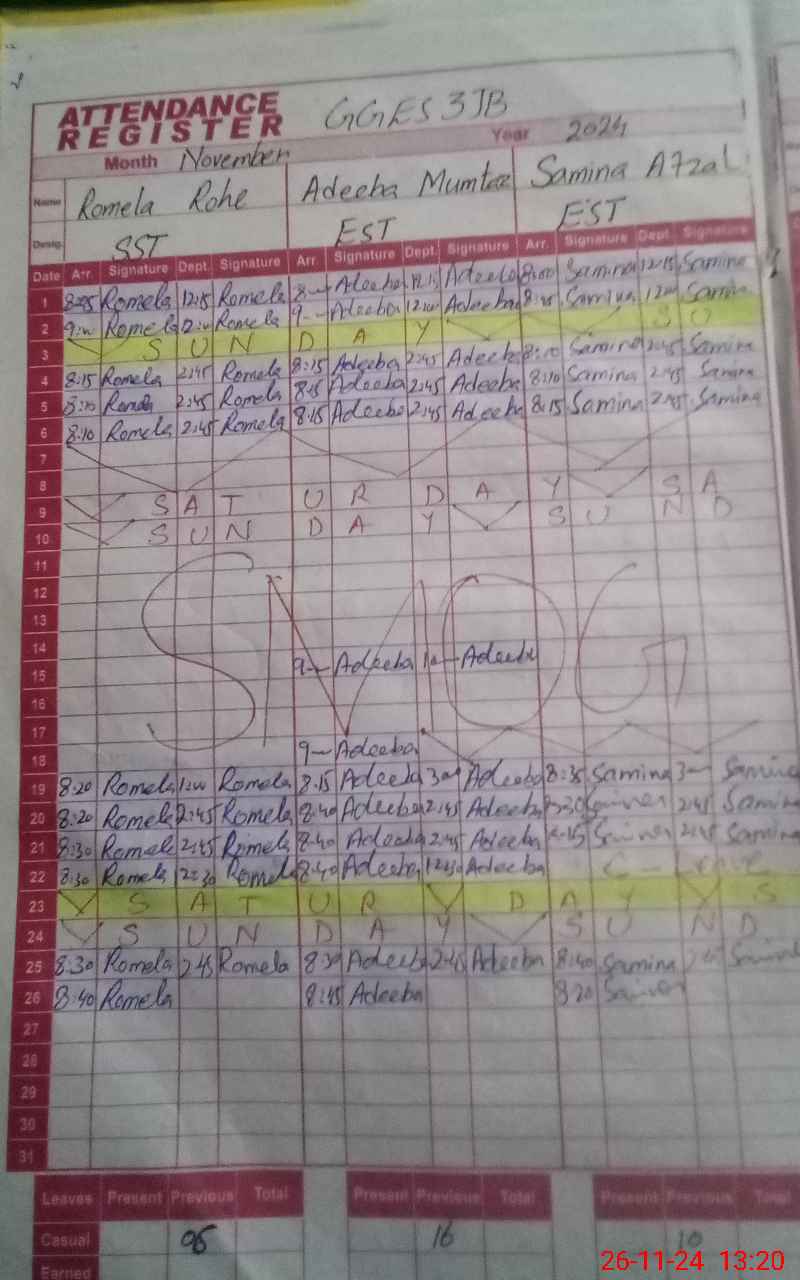 ATTENDANCE REGISTER GGES 3JB
Month November Year 2024
Name Romela Rohe Adeeba Mumtaz Samina Afzal
Desig. SST EST EST
Date Arr. Signature Dept. Signature Arr. Signature Dept. Signature Arr. Signature Dept. Signature
1 Romela 12:15 Romela 8- Adeeba Adeeba Samina 12:15 Samina
2 Romela Romela 9- Adeeba Adeeba Samina Samina
3 SUNDAY SU
4 8:15 Romela 2:45 Romela 8:15 Adeeba 2:45 Adeeba 8:10 Samina 2:45 Samina
5 8:10 Romela 2:45 Romela 8:15 Adeeba 2:45 Adeeba 8:10 Samina 2:45 Samina
6 8:10 Romela 2:45 Romela 8:15 Adeeba 2:45 Adeeba 8:15 Samina 2:45 Samina
7
8
9 SATURDAY SA
10 SUNDAY SUND
11
12
13
SMOG
14
15 9- Adeeba Adeeba
16
17
18 9- Adeeba
19 8:20 Romela Romela 8:15 Adeeba Adeeba 8:35 Samina 3- Samina
20 8:20 Romela 2:45 Romela 8:40 Adeeba 2:45 Adeeba Samina 2:45 Samina
21 8:30 Romela 2:45 Romela 8:40 Adeeba 2:45 Adeeba Samina Samina
22 8:30 Romela 12:30 Romela 8:40 Adeeba 12:30 Adeeba C-Leave
23 SATURDAY S
24 SUNDAY SUND
25 8:30 Romela 2:45 Romela 8:30 Adeeba 2:45 Adeeba 8:40 Samina 2:45 Samina
26 8:40 Romela 8:45 Adeeba 8:20 Samina
27
28
29
30
31
Leaves Present Previous Total Present Previous Total Present Previous Total
Casual 16 10
Earned
26-11-24 13:20